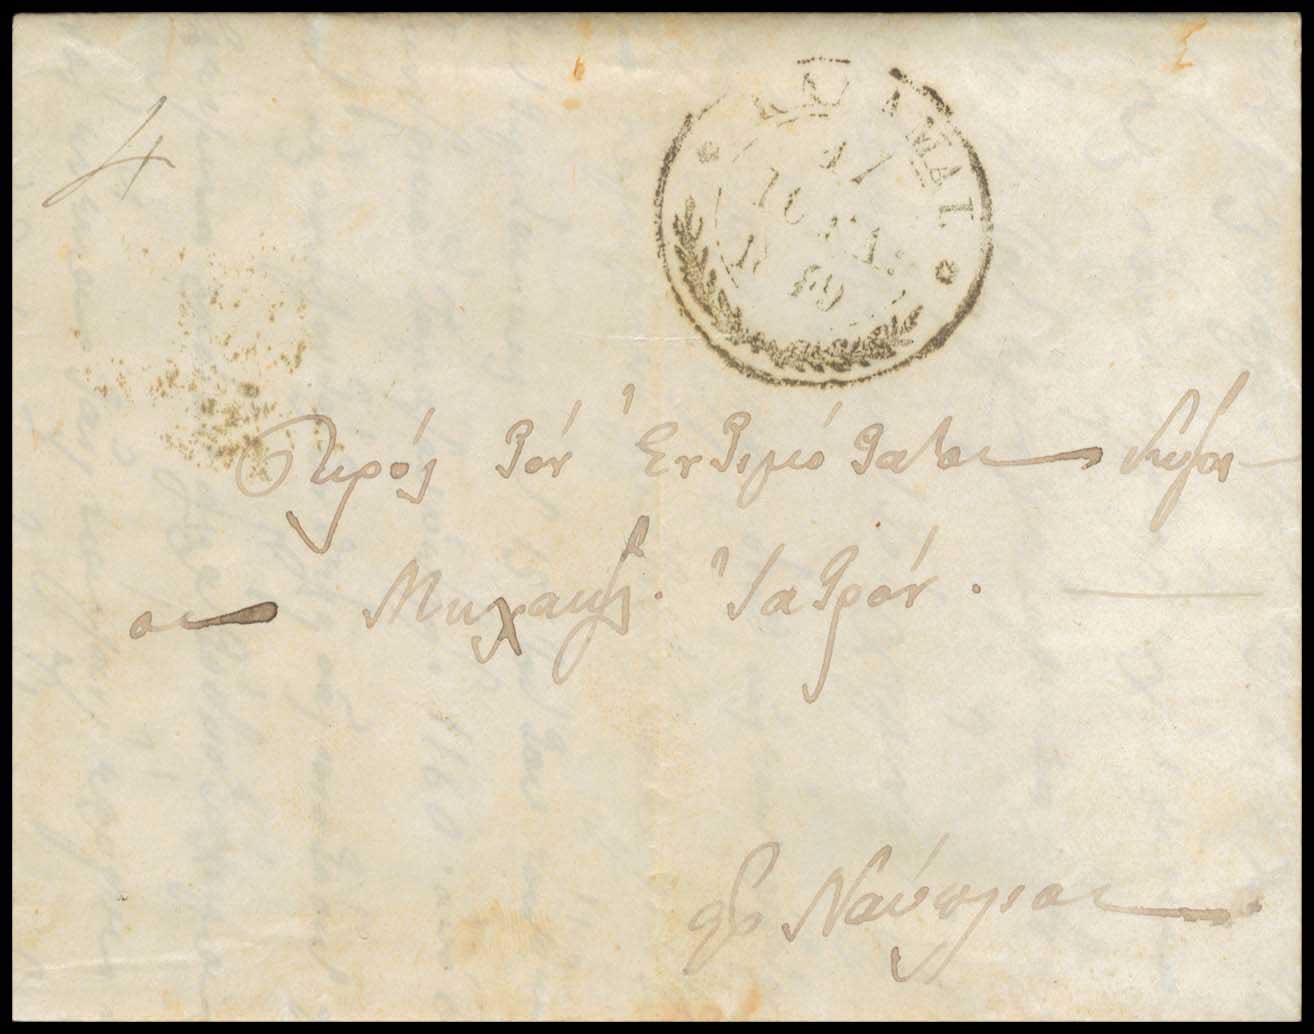 4
ΚΑΛΑΜΑΙ.
17
ΙΟΥΛ:
1839
Πρὸς τὸν Ἐντιμότατον Κύριον
Μιχαὴλ. Ἰατρόν.
εἰς Ναύπλιον